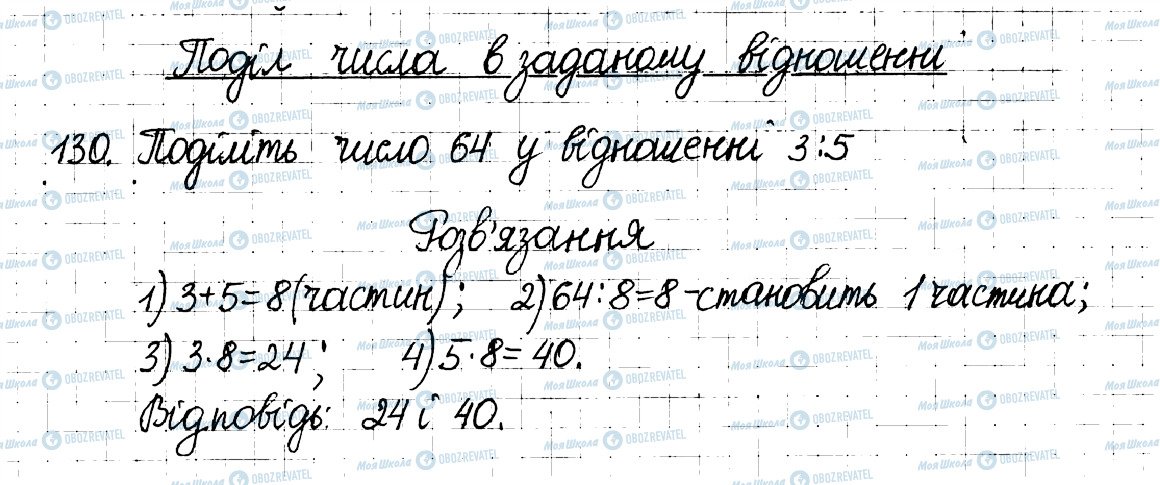 Поділ числа в заданому відношенні
130. Поділіть число 64 у відношенні 3:5
Розв'язання
1) 3+5=8 (частин); 2) 64:8=8 - становить 1 частина;
3) 3·8=24; 4) 5·8=40.
Відповідь: 24 і 40.